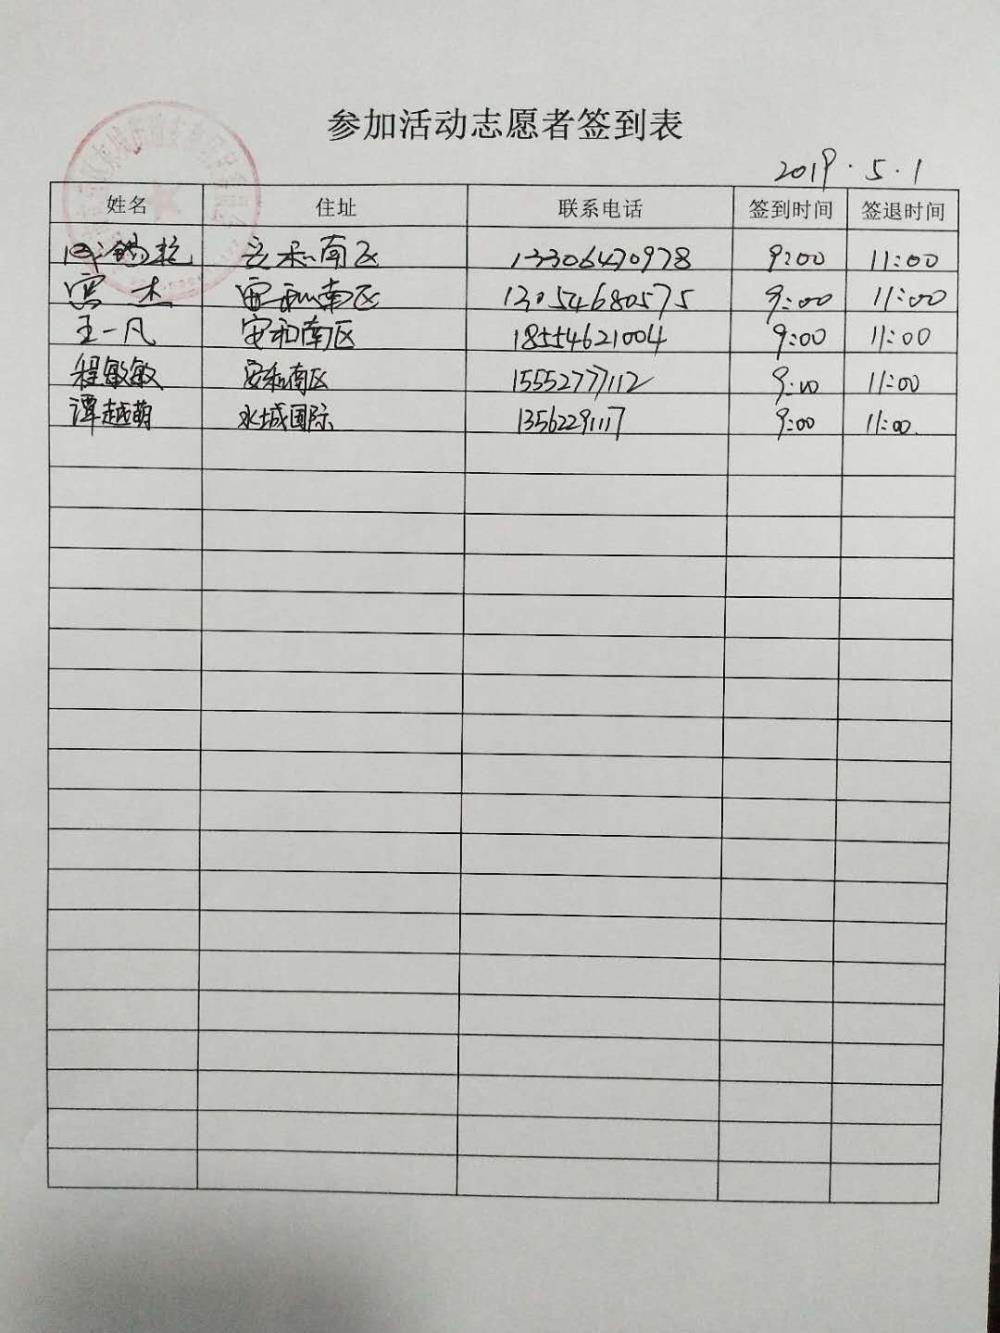 参加活动志愿者签到表
2019.5.1
姓名 住址 联系电话 签到时间 签退时间
安和南区 13306470978 9:00 11:00
杰 安和南区 13054680575 9:00 11:00
王一凡 安和南区 18554621004 9:00 11:00
程敏敏 安和南区 15552777112 9:00 11:00
谭越萌 水城国际 13562291117 9:00 11:00.